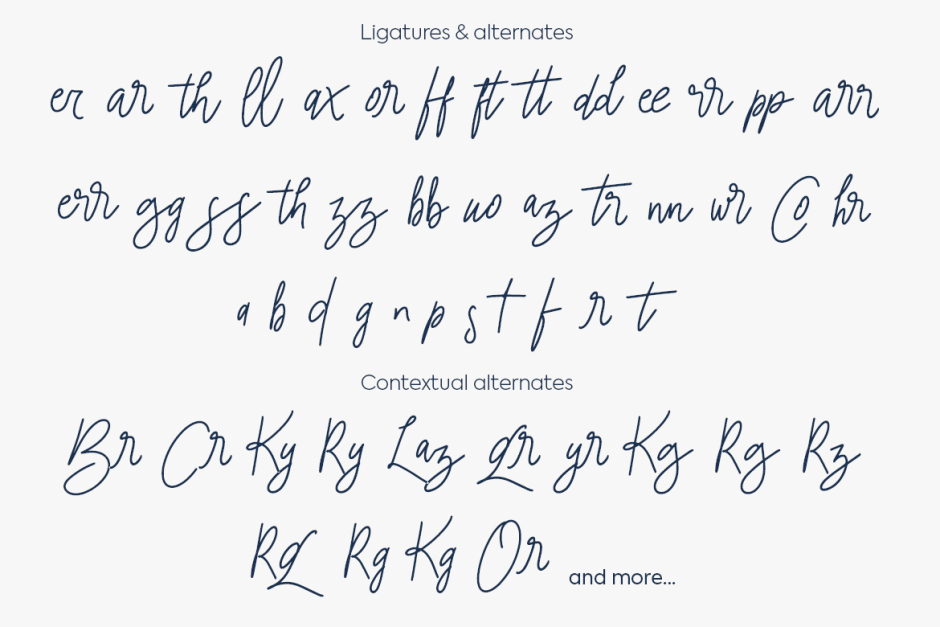 Ligatures & alternates
er ar th ll ax or ff ft tt dd ee rr pp arr
err gg ss th zz bb uo az tr nn wr @ hr
a b d g n p s t f r t
Contextual alternates
Br Cr Ky Ry Laz gr yr Kg Rg Rz
Rg Rg Kg Or and more...